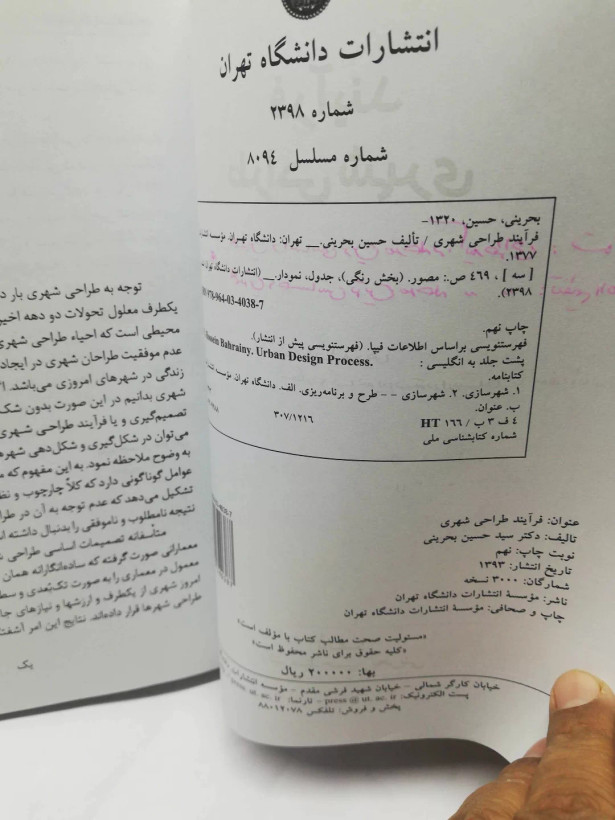 انتشارات دانشگاه تهران
شماره ۲۳۹۸
شماره مسلسل ۸۰۹۴
بحرینی، حسین، ۱۳۲۰-
فرآیند طراحی شهری / تألیف حسین بحرینی.__ تهران: دانشگاه تهران، مؤسسه
۱۳۷۷.
[ سه ] ، ۴۶۹ ص.: مصور. (بخش رنگی)، جدول، نمودار.__ (انتشارات دانشگاه تهران
۲۳۹۸).
978-964-03-4038-7
چاپ نهم.
فهرستنویسی براساس اطلاعات فیپا. (فهرستنویسی پیش از انتشار).
پشت جلد به انگلیسی: Hossein Bahrainy. Urban Design Process.
کتابنامه.
۱. شهرسازی. ۲. شهرسازی -- طرح و برنامه‌ریزی. الف. دانشگاه تهران، مؤسسه
ب. عنوان.
۴ ف ۳ ب / ۱۶۶ HT ۳۰۷/۱۲۱۶
شماره کتابشناسی ملی
عنوان: فرآیند طراحی شهری
تالیف: دکتر سید حسین بحرینی
نوبت چاپ: نهم
تاریخ انتشار: ۱۳۹۳
شمارگان: ۳۰۰۰ نسخه
ناشر: مؤسسهٔ انتشارات دانشگاه تهران
چاپ و صحافی: مؤسسهٔ انتشارات دانشگاه تهران
«مسئولیت صحت مطالب کتاب با مؤلف است»
«کلیه حقوق برای ناشر محفوظ است»
بها: ۲۰۰۰۰۰ ریال
خیابان کارگر شمالی - خیابان شهید فرشی مقدم - مؤسسه انتشارات
پست الکترونیک: press @ ut. ac. ir - تارنما: press. ut. ac. ir
پخش و فروش: تلفکس ۸۸۰۱۲۰۷۸
توجه به طراحی شهری بار د
یکطرف معلول تحولات دو دهه اخیر
محیطی است که احیاء طراحی شهری
عدم موفقیت طراحان شهری در ایجاد
زندگی در شهرهای امروزی می‌باشد.
شهری بدانیم در این صورت بدون شک
تصمیم‌گیری و یا فرآیند طراحی شهری
می‌توان در شکل‌گیری و شکل‌دهی شهرها
به وضوح ملاحظه نمود. به این مفهوم که
عوامل گوناگونی دارد که کلاً چارچوب و نظ
تشکیل می‌دهد که عدم توجه به آن در طرا
نتیجه نامطلوب و ناموفقی را بدنبال داشته
متأسفانه تصمیمات اساسی طراحی
معمارانی صورت گرفته که ساده‌انگارانه همان
معمول در معماری را به صورت تک‌بُعدی و سط
امروز شهری از یکطرف و ارزشها و نیازهای جا
طراحی شهرها قرار داده‌اند. نتایج این امر آشفت
یک